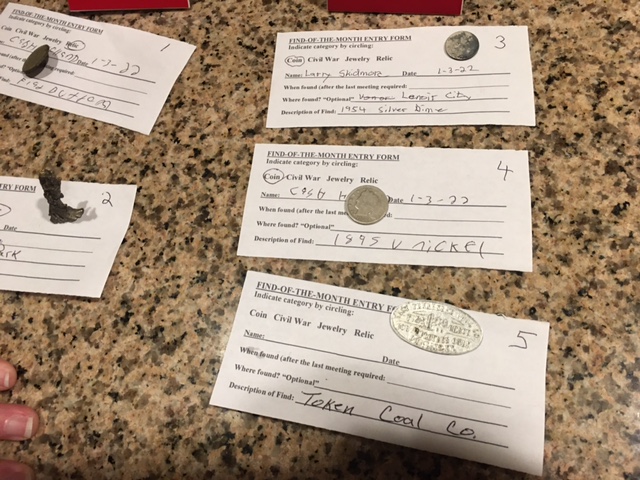 FIND-OF-THE-MONTH ENTRY FORM
Indicate category by circling:
Coin Civil War Jewelry Relic
1
Date 1-3-22
required:
FORM
2
FIND-OF-THE-MONTH ENTRY FORM
Indicate category by circling:
3
Coin Civil War Jewelry Relic
Name: Larry Skidmore Date 1-3-22
When found (after the last meeting required:
Where found? "Optional" Lenoir City
Description of Find: 1954 silver Dime
FIND-OF-THE-MONTH ENTRY FORM
Indicate category by circling:
4
Coin Civil War Jewelry Relic
Name: Cash Date 1-3-22
When found (after the last
Where found? "Optional"
Description of Find: 1895 V nickel
FIND-OF-THE-MONTH ENTRY FORM
Indicate category by circling:
5
Coin Civil War Jewelry Relic
Name: Date
When found (after the last meeting required:
Where found? "Optional"
Description of Find: Token Coal Co.